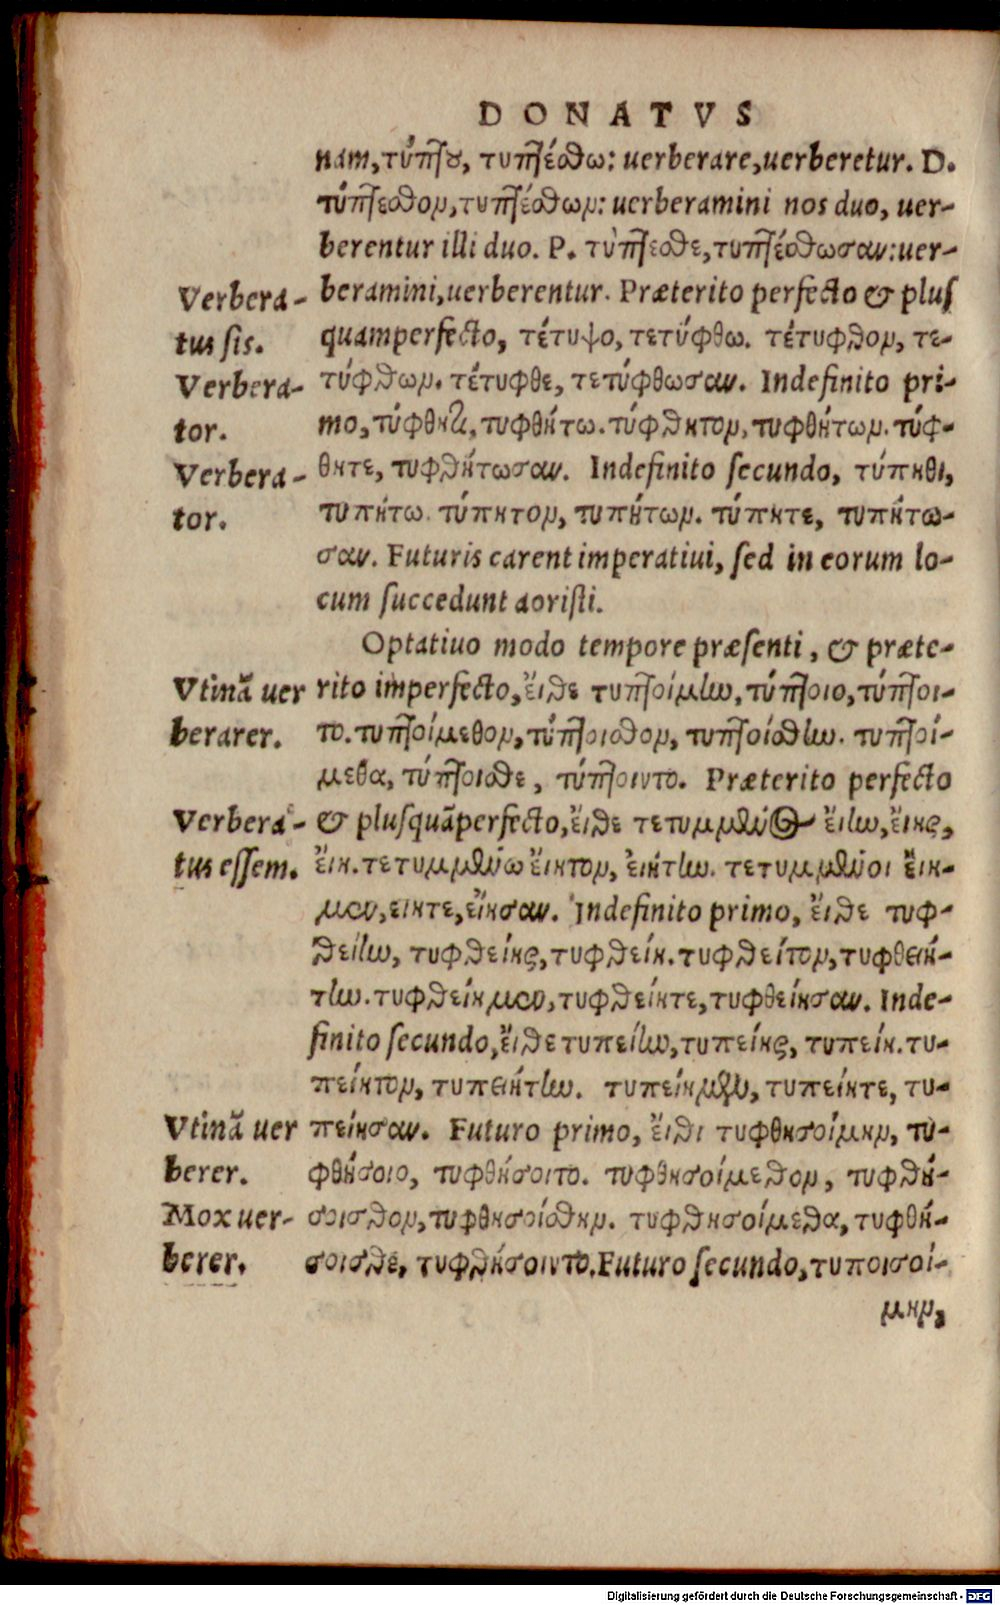 DONATVS
nam, τύπτου, τυπτέσθω: uerberare, uerberetur. D.
τύπτεσθον, τυπτέσθων: uerberamini nos duo, uer-
berentur illi duo. P. τύπτεσθε, τυπτέσθωσαν: uer-
Verbera-
tus sis.
Verbera-
tor.
Verbera-
tor.
beramini, uerberentur. Præterito perfecto & plus
quamperfecto, τέτυψο, τετύφθω. τέτυφθον, τε-
τύφθων. τέτυφθε, τετύφθωσαν. Indefinito pri-
mo, τύφθητι, τυφθήτω. τύφθητον, τυφθήτων. τύφ-
θητε, τυφθήτωσαν. Indefinito secundo, τύπηθι,
τυπήτω. τύπητον, τυπήτων. τύπητε, τυπήτω-
σαν. Futuris carent imperatiui, sed in eorum lo-
cum succedunt aoristi.
Optatiuo modo tempore præsenti, & præte-
Vtinã uer
berarer.
rito imperfecto, ἔιθε τυπτοίμην, τύπτοιο, τύπτοι-
το. τυπτοίμεθον, τύπτοισθον, τυπτοίσθην. τυπτοί-
μεθα, τύπτοισθε, τύπτοιντο. Præterito perfecto
Verbera-
tus essem.
& plusquãperfecto, ἔιθε τετυμμένος ἔιην, ἔιης,
ἔιη. τετυμμένω ἔιητον, ἐιήτην. τετυμμένοι ἔιη-
μεν, ειητε, ἔιησαν. Indefinito primo, ἔιθε τυφ-
θείην, τυφθείης, τυφθείη. τυφθείτον, τυφθειή-
την. τυφθείημεν, τυφθείητε, τυφθείησαν. Inde-
finito secundo, ἔιθε τυπείην, τυπείης, τυπείη. τυ-
πείητον, τυπειήτην. τυπείημεν, τυπείητε, τυ-
Vtinã uer
berer.
Mox uer-
berer.
πείησαν. Futuro primo, ἔιθι τυφθησοίμην, τυ-
φθήσοιο, τυφθήσοιτο. τυφθησοίμεθον, τυφθή-
σοισθον, τυφθησοίσθην. τυφθησοίμεθα, τυφθή-
σοισθε, τυφθήσοιντο. Futuro secundo, τυποισοί-
μην,
Digitalisierung gefördert durch die Deutsche Forschungsgemeinschaft - DFG